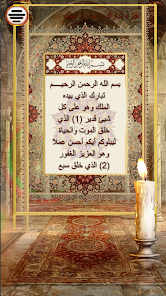 بسم الله الرحمن الرحيم
تبارك الذي بيده
الملك وهو على كل
شيئ قدير (1) الذي
خلق الموت والحياة
ليبلوكم أيكم أحسن عملا
وهو العزيز الغفور
(2) الذي خلق سبع